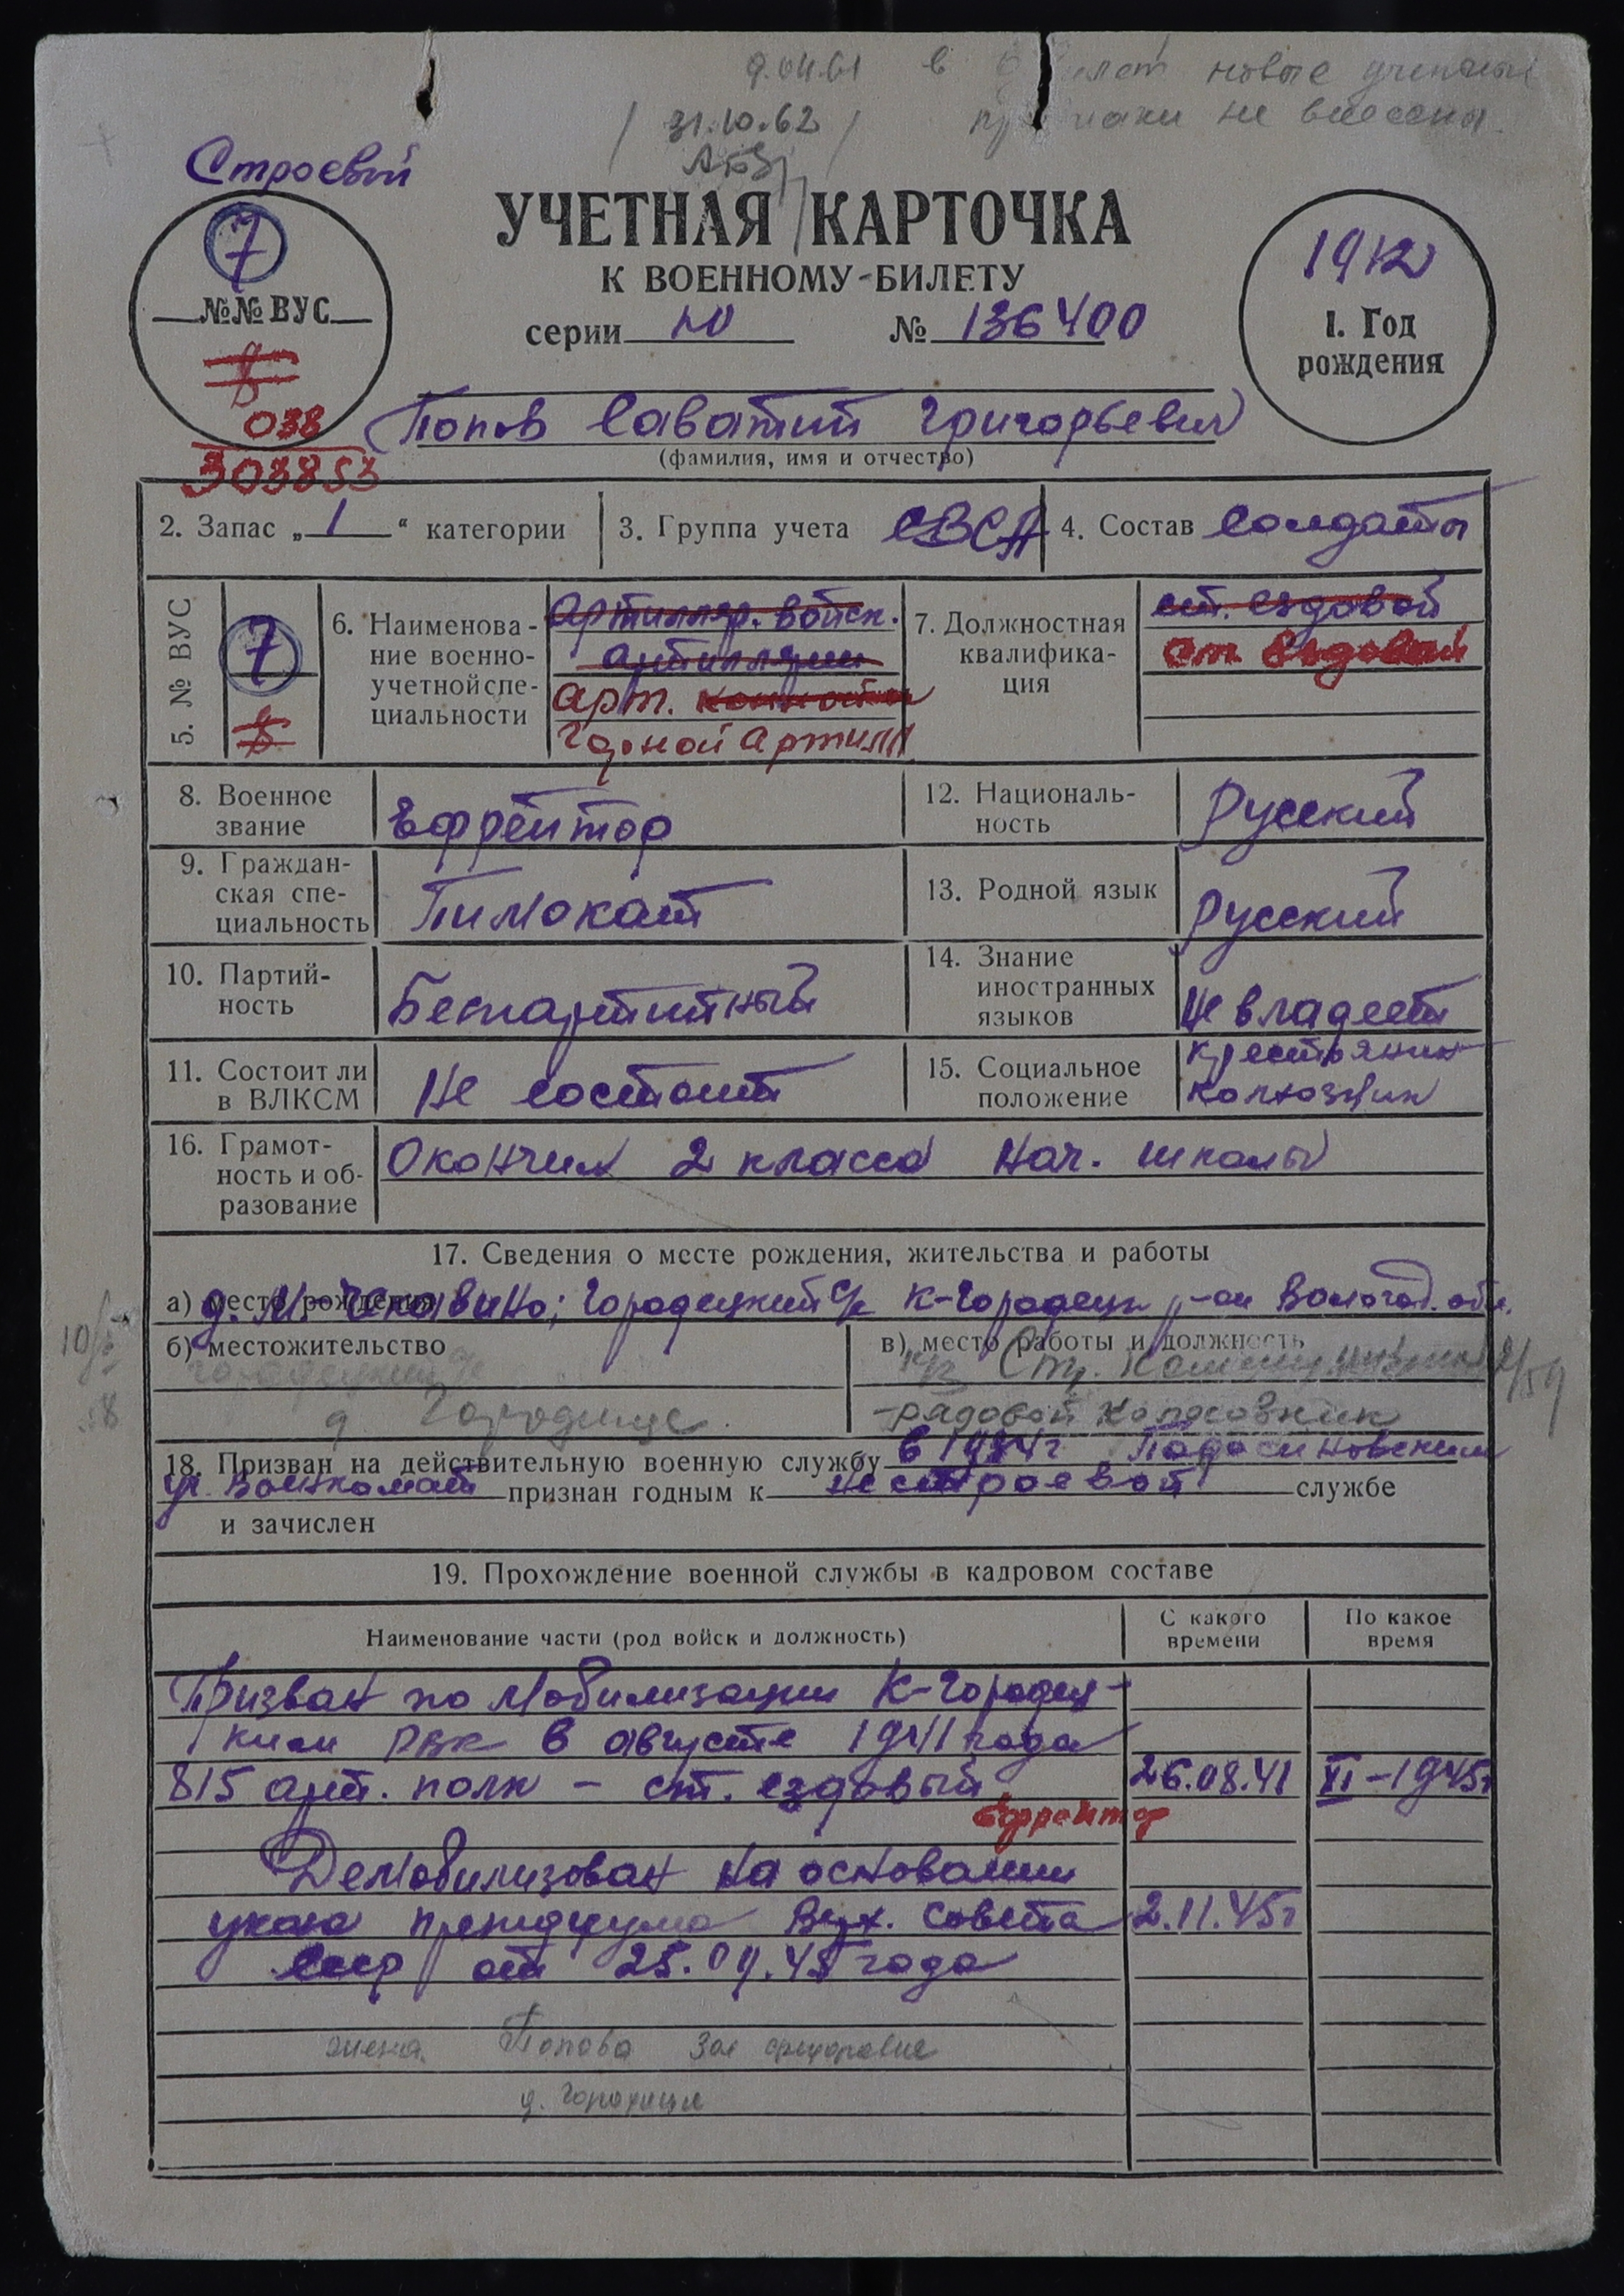 9.04.61 в билет новые учетные
/ 31.10.62 / признаки не внесены.
Строевой
УЧЕТНАЯ КАРТОЧКА
К ВОЕННОМУ-БИЛЕТУ
серии Ю № 136400
7
№№ ВУС
038
303853
1912
1. Год
рождения
Попов Саватий Григорьевич
(фамилия, имя и отчество)
2. Запас „1“ категории
3. Группа учета СВСА
4. Состав солдаты
5. № ВУС
7
6. Наименова-
ние военно-
учетной спе-
циальности
Артилляр. войск.
артиллерии
Арт.
Горной Артилл
7. Должностная
квалифика-
ция
ст. ездовой
Ст. Ездовой
8. Военное
звание
Ефрейтор
12. Националь-
ность
Русский
9. Граждан-
ская спе-
циальность
Пимокат
13. Родной язык
Русский
10. Партий-
ность
Беспартийный
14. Знание
иностранных
языков
Не владеет
11. Состоит ли
в ВЛКСМ
Не состоит
15. Социальное
положение
Крестьянин
колхозник
16. Грамот-
ность и об-
разование
Окончил 2 класса нач. школы
17. Сведения о месте рождения, жительства и работы
а) место рождения д. М-Исковино; Городецкий с/с К-Городецк р-он Вологод. обл.
б) местожительство
Городецкий с/с
д Городище.
в) место работы и должность
к/з Стр. Коммунизма
-рядовой колхозник
18. Призван на действительную военную службу в 1934г Подосиновским
у. Военкомат признан годным к нестроевой службе
и зачислен
19. Прохождение военной службы в кадровом составе
Наименование части (род войск и должность)
С какого
времени
По какое
время
Призван по мобилизации К-Городец-
ким РВК в августе 1941 года
815 арт. полк - ст. ездовый 26.08.41 XI-1945г
Ефрейтор
Демобилизован на основании
указа президиума Верх. Совета 2.11.45г
СССР от 25.09.45 года
жена. Попова Зоя
д. Городище